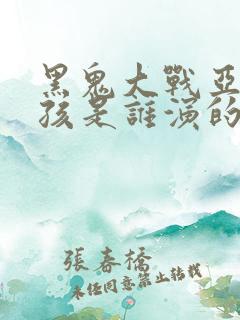 黑鬼大戰亞
孩是誰演的
張春橋
未经同意禁止转载